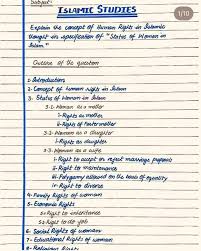 Subject:
ISLAMIC STUDIES
1/10
Explain the concept of Human Rights in Islamic
thought in specification of "Status of Woman in
Islam."
Outline of the question
1- Introduction
2- Concept of human rights in Islam
3- Status of Woman in Islam
3-1- Woman as a mother
i- Rights as mother
ii- Rights of foster mother
3-2- Woman as a daughter
i- Rights as daughter
3-3- Woman as a wife
i- Right to accept or reject marriage proposals
ii- Right to maintenance
iii- Polygamy allowed on the basis of equality
iv- Right to divorce
4- Family Rights of woman
5- Economic Rights
5-1- Right to inheritance
5-2- Right to do job
6- Social Rights of woman
7- Educational Rights of woman
8- Religious Rights